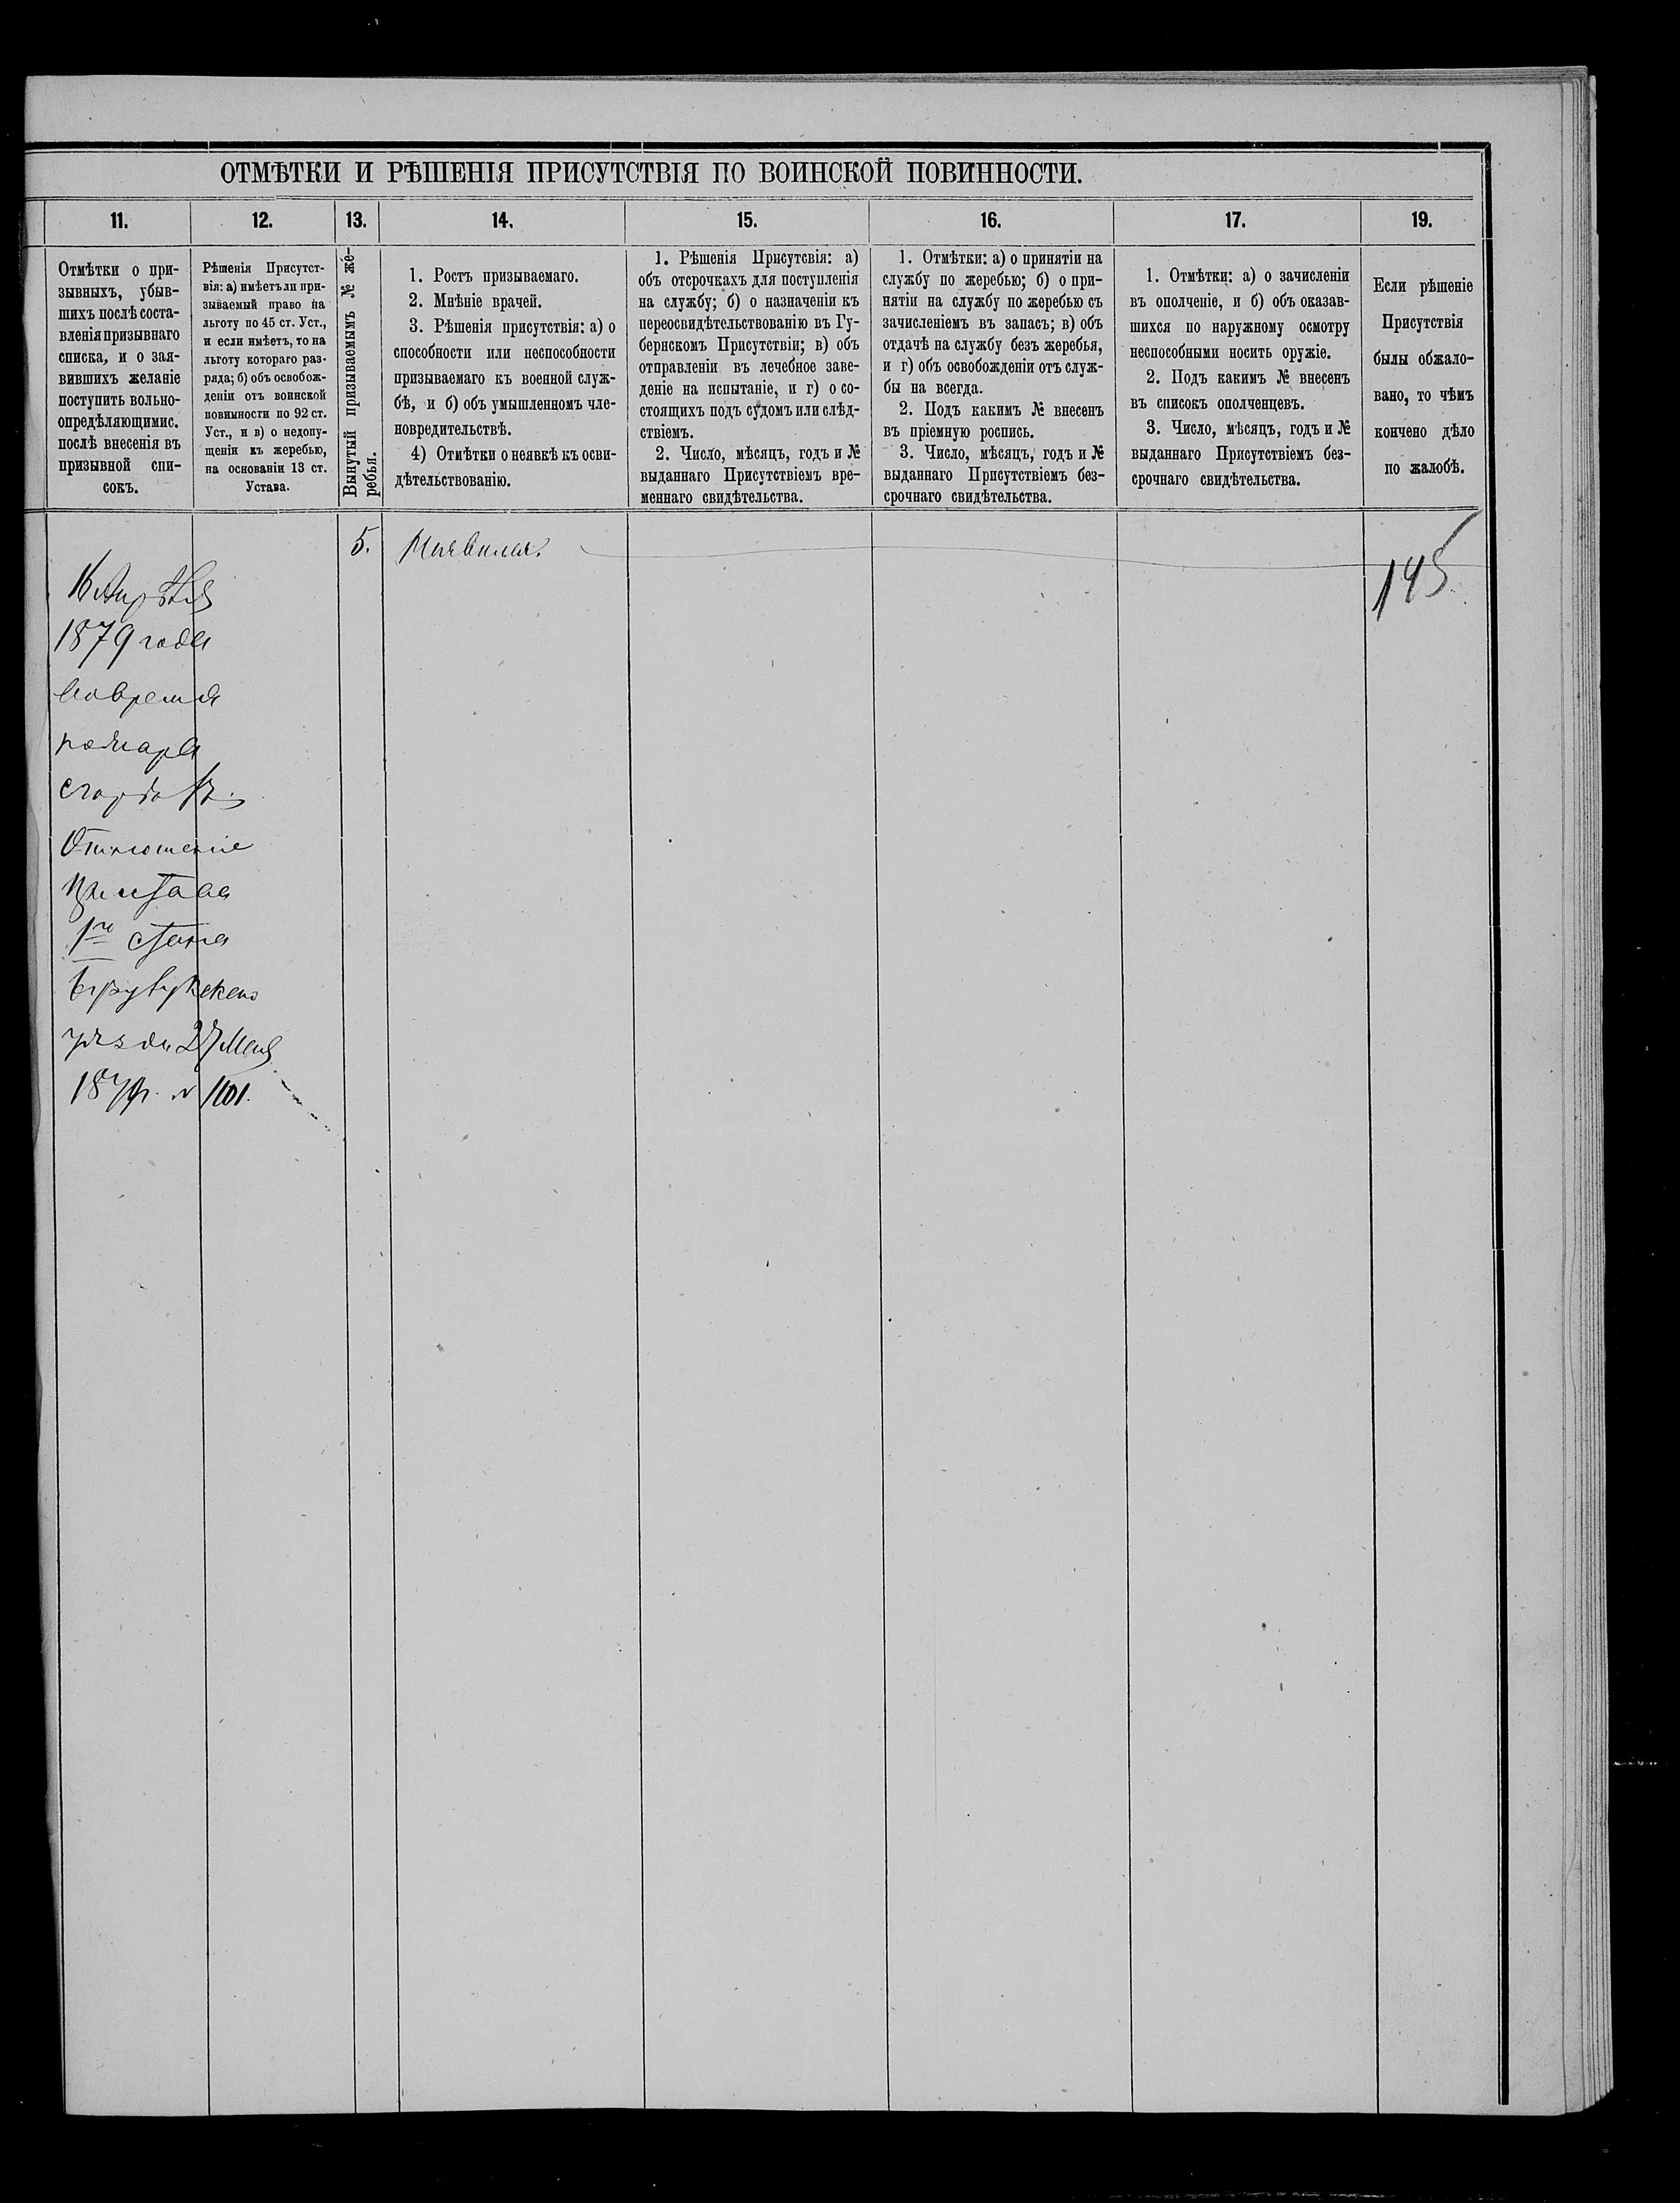 ОТМѢТКИ И РѢШЕНІЯ ПРИСУТСТВІЯ ПО ВОИНСКОЙ ПОВИННОСТИ.
11.
12.
13.
14.
15.
16.
17.
19.
Отмѣтки о при-
зывныхъ, убыв-
шихъ послѣ соста-
вленія призывнаго
списка, и о зая-
вившихъ желаніе
поступить вольно-
опредѣляющимис.
послѣ внесенія въ
призывной спи-
сокъ.
Рѣшенія Присутст-
вія: а) имѣетъ ли при-
зываемый право на
льготу по 45 ст. Уст.,
и если имѣетъ, то на
льготу котораго раз-
ряда; б) объ освобож-
деніи отъ воинской
повинности по 92 ст.
Уст., и в) о недопу-
щеніи къ жеребью,
на основаніи 13 ст.
Устава.
Вынутый призываемымъ № же-
ребья.
1. Ростъ призываемаго.
2. Мнѣніе врачей.
3. Рѣшенія присутствія: а) о
способности или неспособности
призываемаго къ военной служ-
бѣ, и б) объ умышленномъ чле-
новредительствѣ.
4) Отмѣтки о неявкѣ къ осви-
дѣтельствованію.
1. Рѣшенія Присутсвія: а)
объ отсрочкахъ для поступленія
на службу; б) о назначеніи къ
переосвидѣтельствованію въ Гу-
бернскомъ Присутствіи; в) объ
отправленіи въ лечебное заве-
деніе на испытаніе, и г) о со-
стоящихъ подъ судомъ или слѣд-
ствіемъ.
2. Число, мѣсяцъ, годъ и №
выданнаго Присутствіемъ вре-
меннаго свидѣтельства.
1. Отмѣтки: а) о принятіи на
службу по жеребью; б) о при-
нятіи на службу по жеребью съ
зачисленіемъ въ запасъ; в) объ
отдачѣ на службу безъ жеребья,
и г) объ освобожденіи отъ служ-
бы на всегда.
2. Подъ какимъ № внесенъ
въ пріемную роспись.
3. Число, мѣсяцъ, годъ и №
выданнаго Присутствіемъ без-
срочнаго свидѣтельства.
1. Отмѣтки: а) о зачисленіи
въ ополченіе, и б) объ оказав-
шихся по наружному осмотру
неспособными носить оружіе.
2. Подъ какимъ № внесенъ
въ списокъ ополченцевъ.
3. Число, мѣсяцъ, годъ и №
выданнаго Присутствіемъ без-
срочнаго свидѣтельства.
Если рѣшеніе
Присутствія
были обжало-
вано, то чѣмъ
кончено дѣло
по жалобѣ.
5.
145
16 Апрѣля
1879 года
вовремя
пожара
сгорѣлъ
Отношеніе
Пристава
1го Стана
уѣзда 27 Мая
1879г. № 1101.